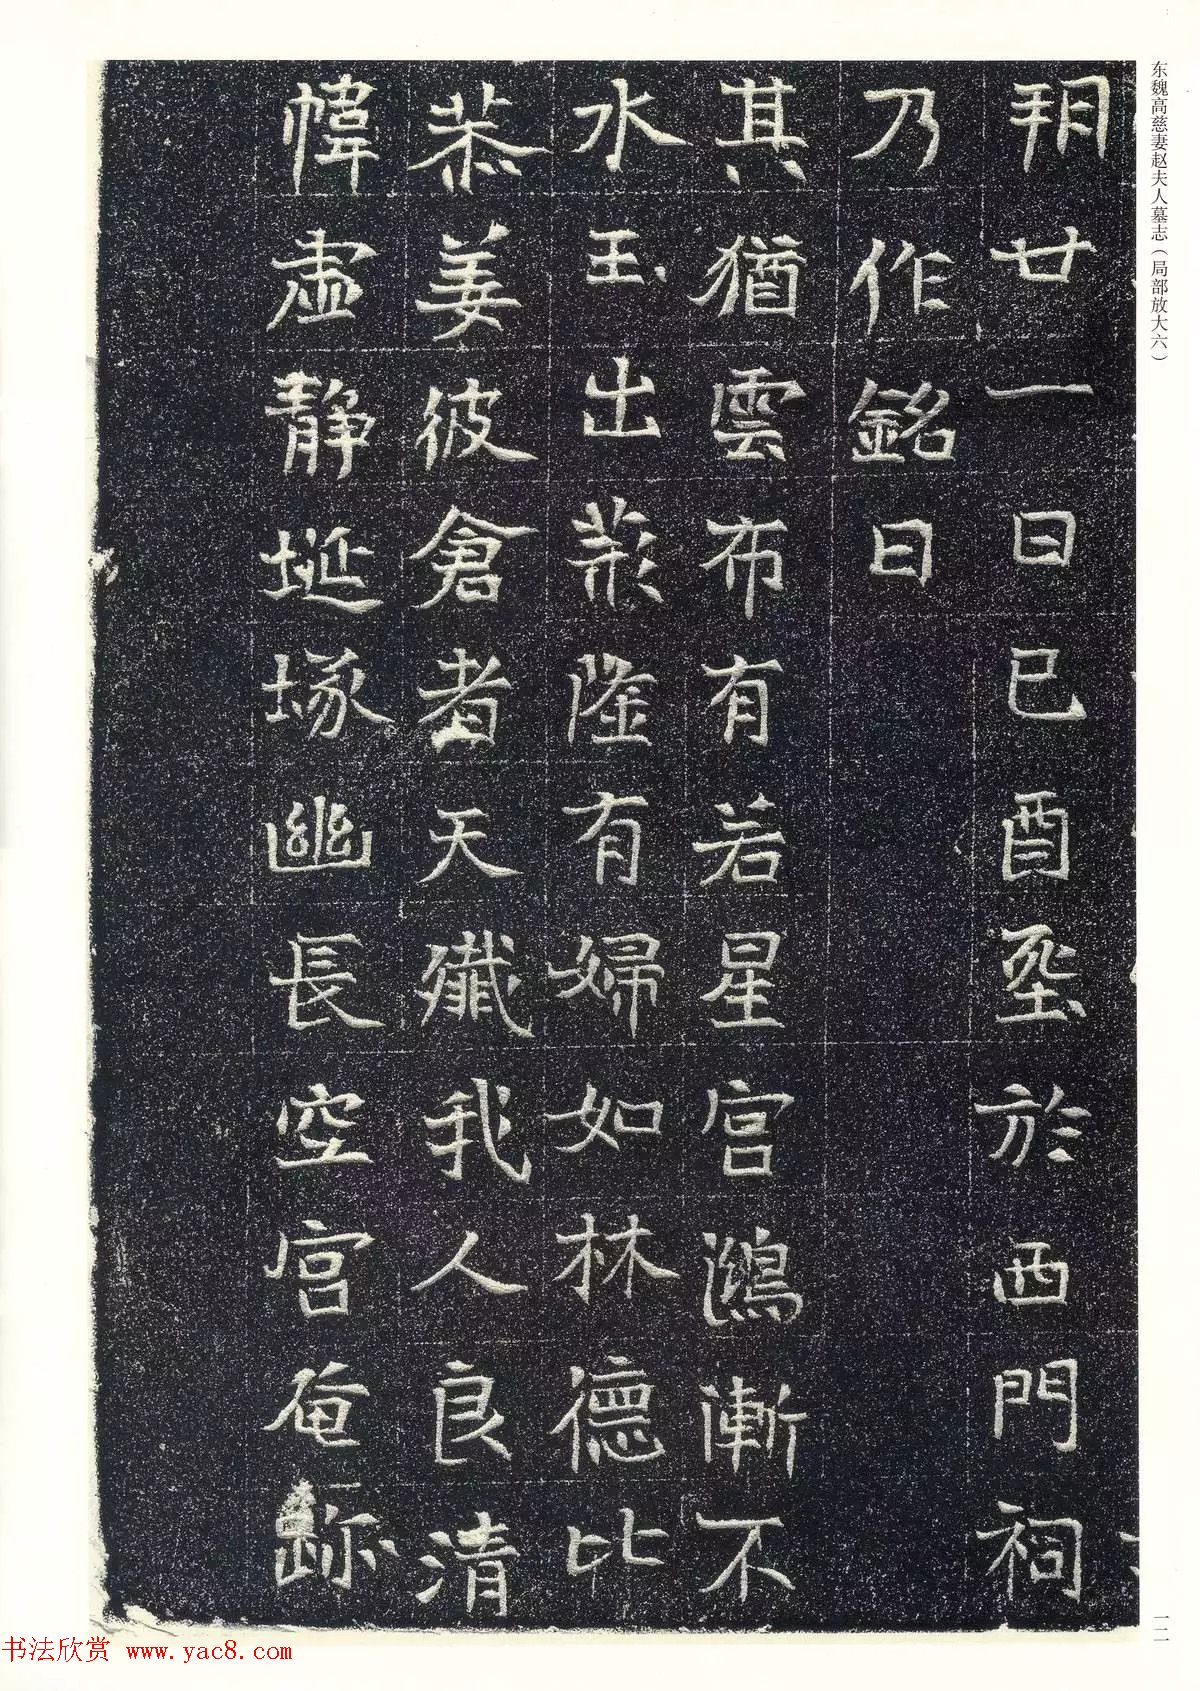 东魏高慈妻赵夫人墓志（局部放大六）
朔廿一日己酉窆於西門祠
乃作銘曰
其猶雲布有若星宫鴻漸不
水玉出荥隆有婦如林德比
恭姜彼倉者天殲我人良清
幃虚静埏塚幽長空宫奄跡
一二
书法欣赏 www.yac8.com